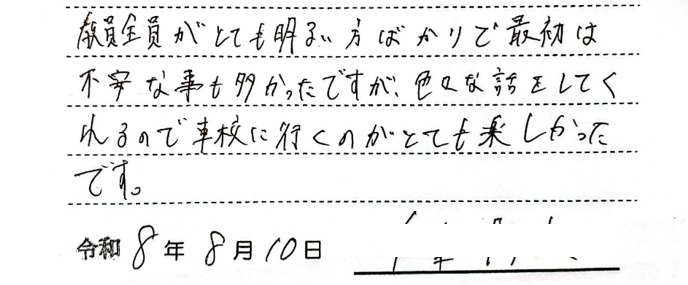 教員全員がとても明るい方ばかりで最初は
不安な事も多かったですが、色々な話をしてく
れるので車校に行くのがとても楽しかった
です。
令和8年8月10日